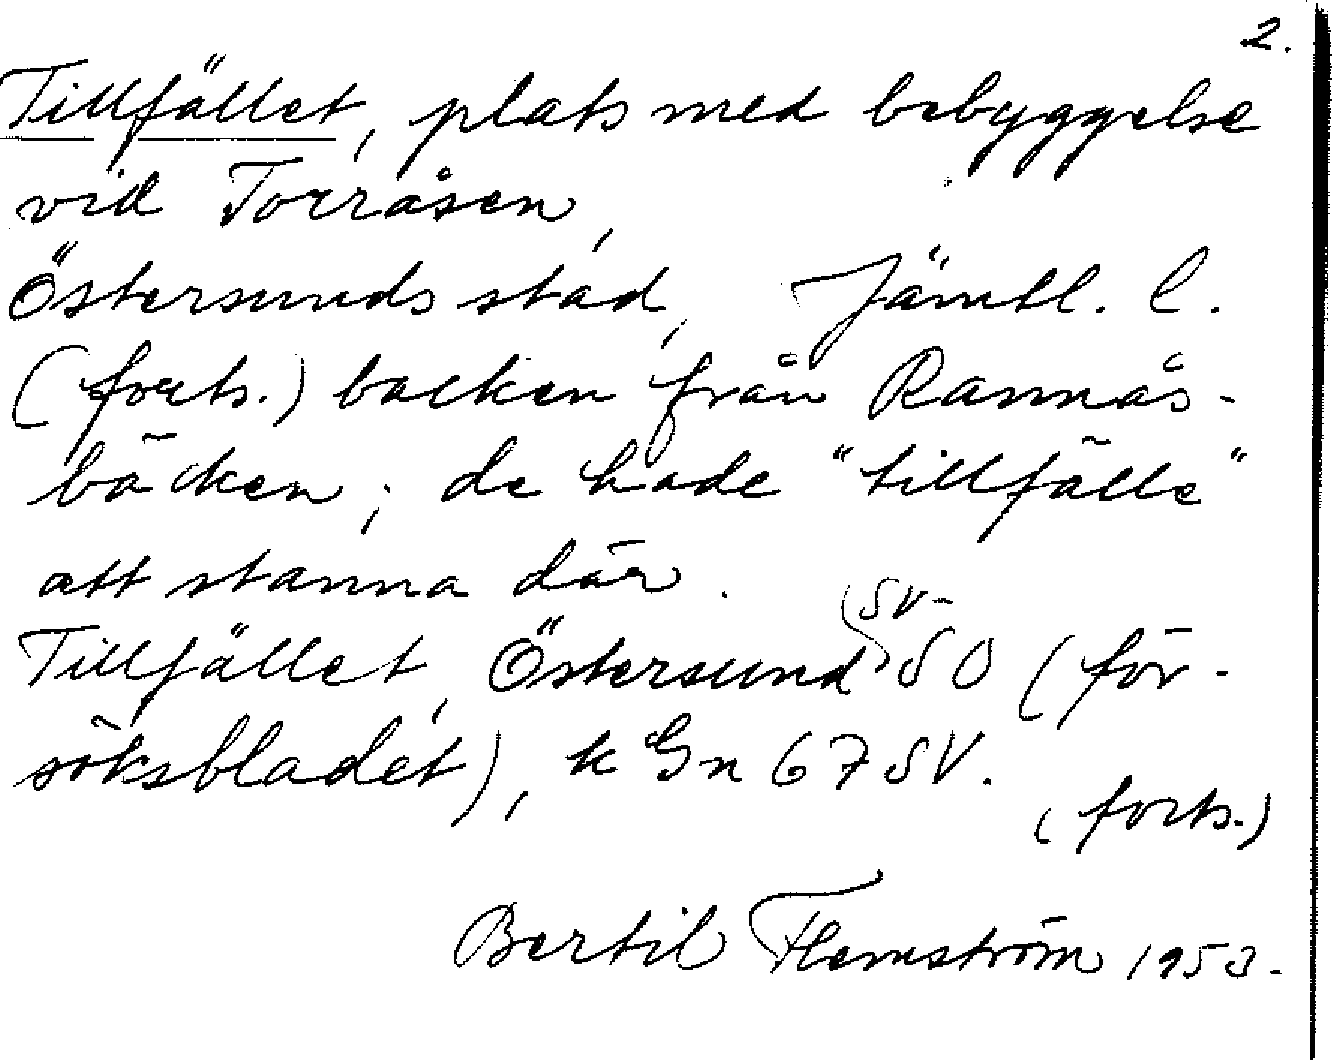 2.
Tillfället, plats med bebyggelse
vid Torråsen,
Östersunds stad, Jämtl. l.
(forts.) backen från Rannås-
bäcken; de hade "tillfälle"
att stanna där.
SV-
Tillfället, Östersund SO (för-
söksbladet), k Gn 67 SV.
(forts.)
Bertil Flemström 1953.